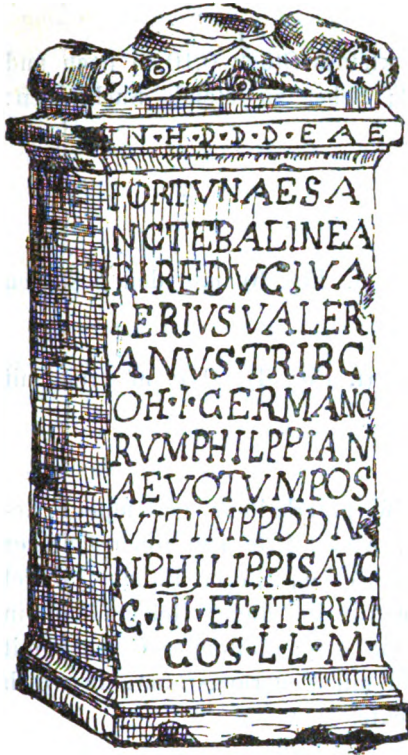 IN·H·D·D·D·DEAE
FORTVNAESA
NCTEBALINEA
RIREDVCIVA
LERIVSVALER
ANVS·TRIBC
OH·I·GERMANO
RVMPHILPPIAN
AEVOTVMPOS
VITIMPPDDN
NPHILIPPISAVG
G·III·ET·ITERVM
COS·L·L·M·